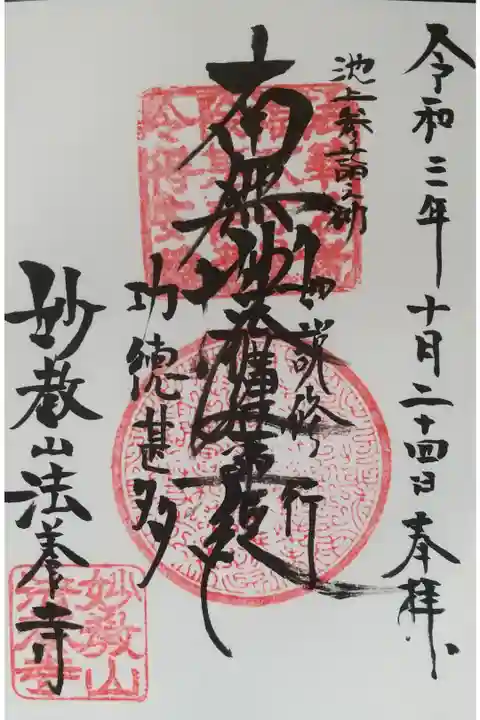 令和三年十月二十四日奉拝
池上
南無妙法蓮華経
如説修行
功徳甚多
妙教山法養寺
妙教山
法養寺